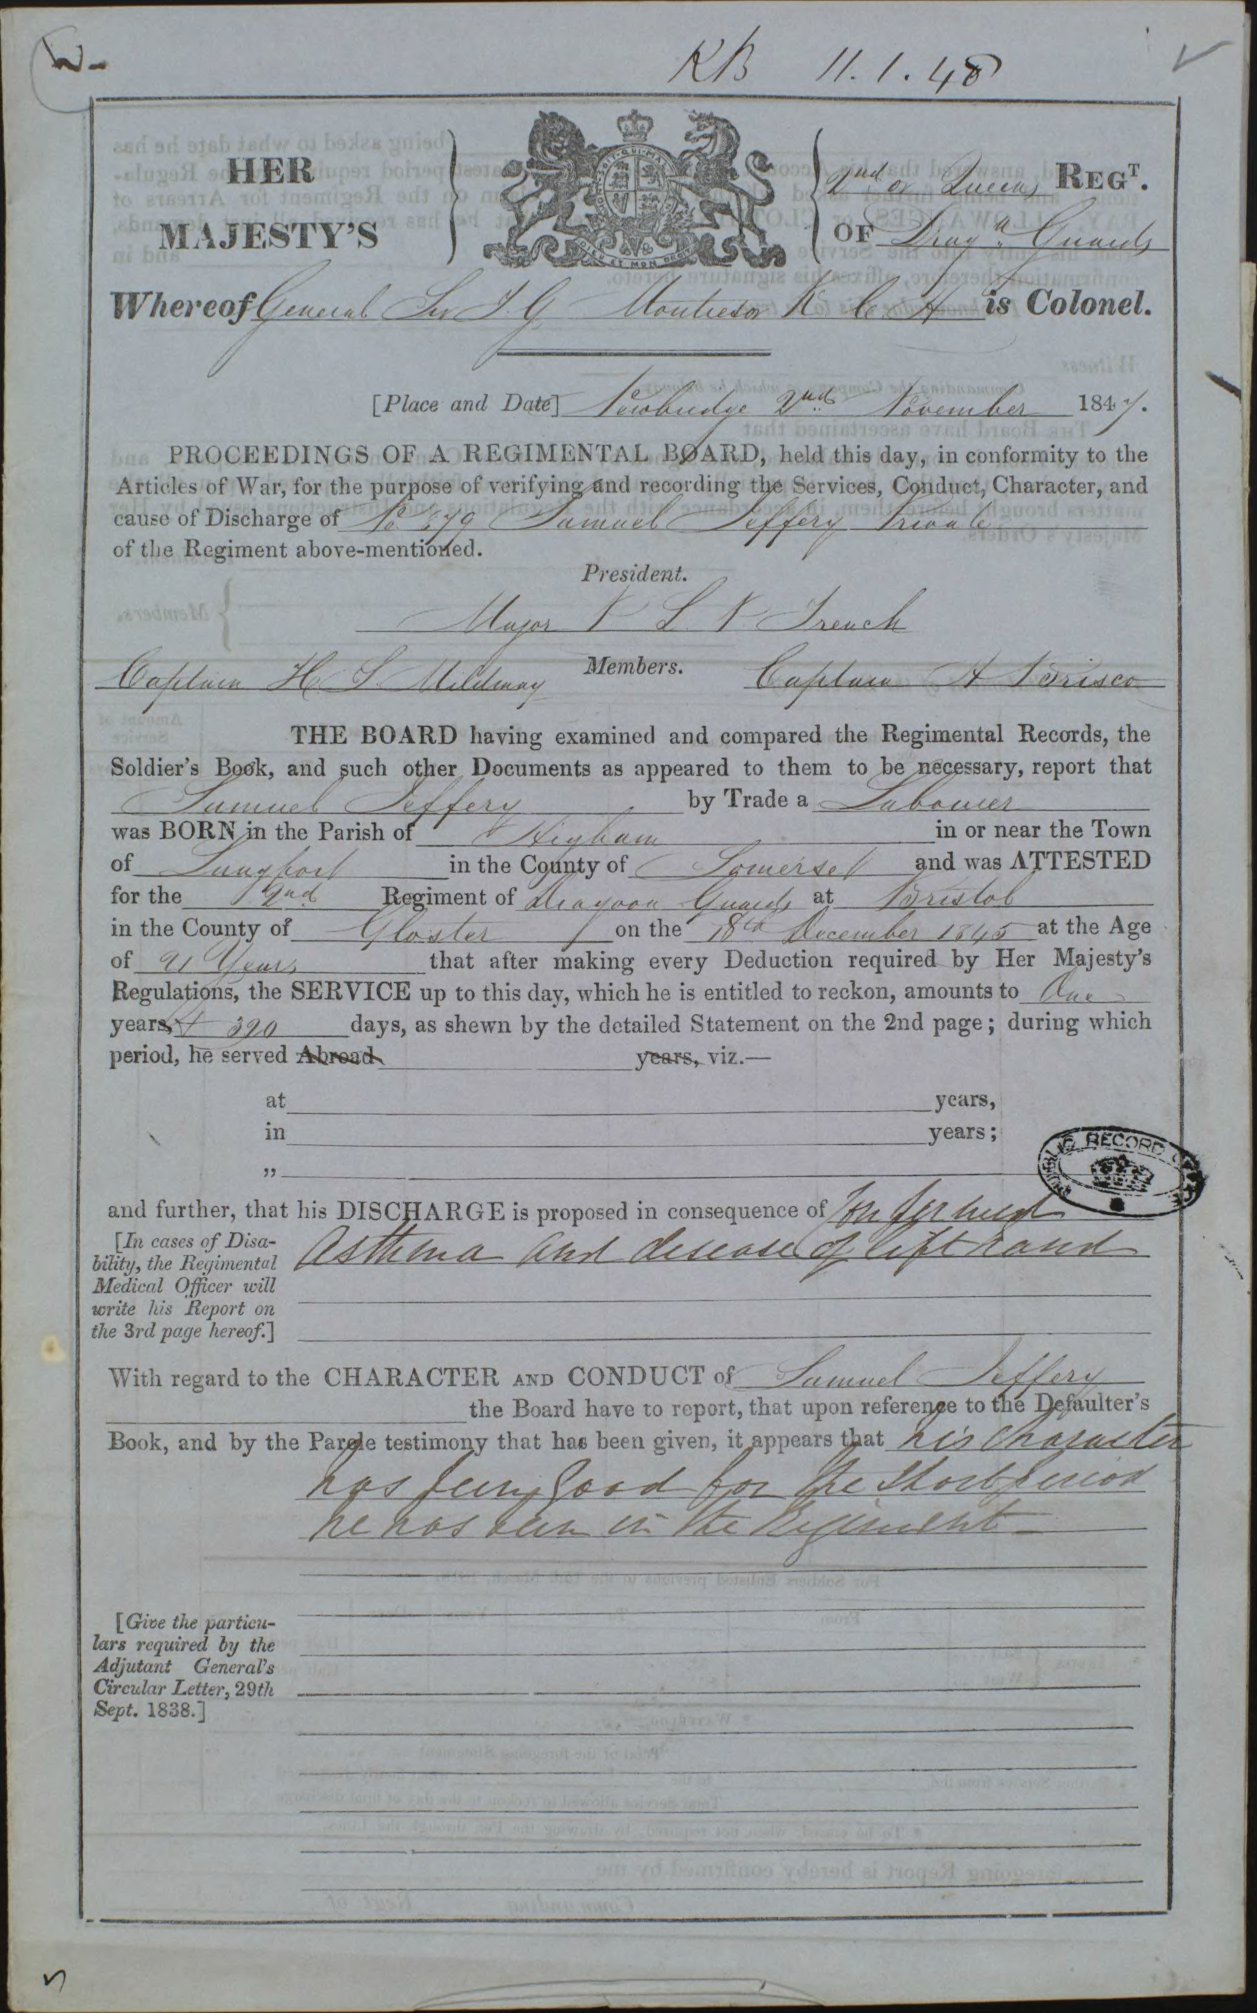 KB 11.1.48
HER
MAJESTY'S
2nd or Queens REGT.
OF Dragn Guards
Whereof General Sir T G Montresor K C H is Colonel.
[Place and Date] Newbridge 2nd November 1847.
PROCEEDINGS OF A REGIMENTAL BOARD, held this day, in conformity to the
Articles of War, for the purpose of verifying and recording the Services, Conduct, Character, and
cause of Discharge of No 879 Samuel Jeffery Private
of the Regiment above-mentioned.
President.
Major L French
Members.
Captain H S Mildmay Captain A Brisco
THE BOARD having examined and compared the Regimental Records, the
Soldier's Book, and such other Documents as appeared to them to be necessary, report that
Samuel Jeffery by Trade a Labourer
was BORN in the Parish of Higham in or near the Town
of Langport in the County of Somerset and was ATTESTED
for the 2nd Regiment of Dragoon Guards at Bristol
in the County of Gloster on the 18th December 1845 at the Age
of 21 Years that after making every Deduction required by Her Majesty's
Regulations, the SERVICE up to this day, which he is entitled to reckon, amounts to One
years, + 320 days, as shewn by the detailed Statement on the 2nd page; during which
period, he served Abroad years, viz.—
at years,
in years;
„
PUBLIC RECORD OFFICE
and further, that his DISCHARGE is proposed in consequence of Confirmed
[In cases of Disa-
bility, the Regimental
Medical Officer will
write his Report on
the 3rd page hereof.]
Asthma and disease of left hand
With regard to the CHARACTER AND CONDUCT of Samuel Jeffery
the Board have to report, that upon reference to the Defaulter's
Book, and by the Parole testimony that has been given, it appears that his Character
has been good for the short period
he has been in the Regiment—
[Give the particu-
lars required by the
Adjutant General's
Circular Letter, 29th
Sept. 1838.]